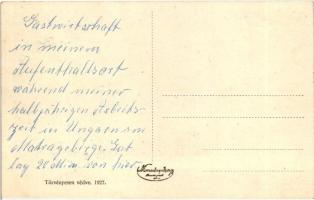 Gastwirtschaft
in meinem
Aufenthaltsort
während meiner
halbjährigen Arbeits-
zeit in Ungarn im
Matragebirge. Gut
lag 20 Min. von hier.
Törvényesen védve. 1927.